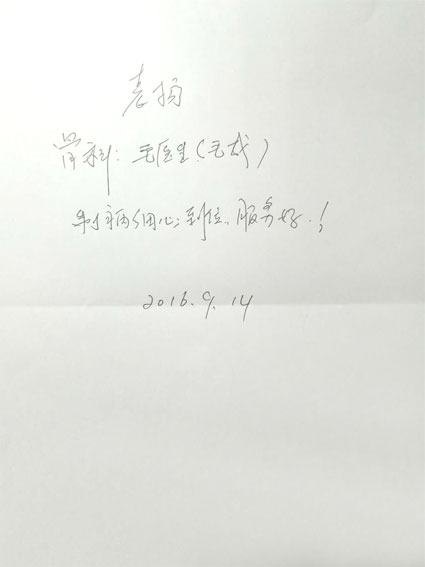 表扬
骨科:毛医生(毛成)
看病细心;到位.服务好.!
2016.9.14